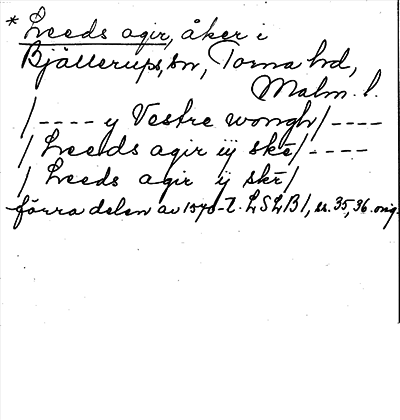 * Leeds agir, åker i
Bjällerups, sn, Torna hd,
Malm. l.
/---- y Vestre wongh/----
/ Leeds agir iij skē/----
/ Leeds agir ij skē/
förra delen av 1570-t. LSLB1, s. 35, 36. orig.